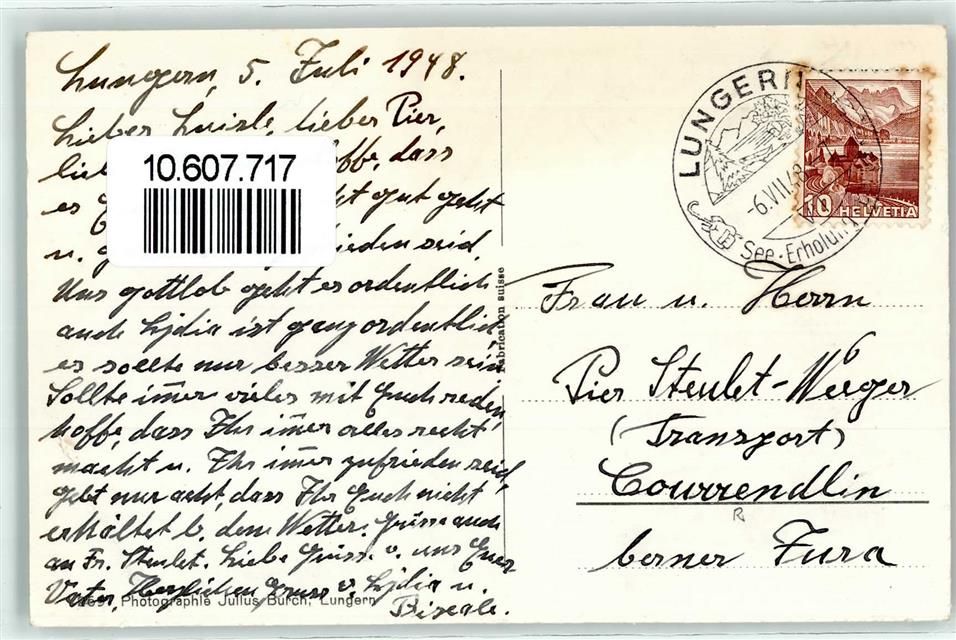 Lungern, 5. Juli 1948.
Lieber Luisli, lieber Pier,
hoffe, dass
es gut geht
u. zufrieden seid,
Uns gottlob geht es ordentlich
auch Lydia ist ganz ordentlich,
es sollte nur besser Wetter sein
Sollte im̄er vieles mit Euch reden,
hoffe, dass Ihr im̄er alles recht
macht u. Ihr im̄er zufrieden seid,
gebt nur acht, dass Ihr Euch nicht
erkältet b. dem Wetter. Grüsse auch
an Fr. Steulet. Liebe Grüsse v. uns Euer
Vater, Herzlichen Gruss v. Lydia u.
Photographie Julius Burch, Lungern
10.607.717
Fabrication suisse
LUNGERN
-6.VII.48
See-Erholung
10 HELVETIA
Frau u. Herrn
Pier Steulet-Weeger
(Transport)
Courrendlin
berner Jura